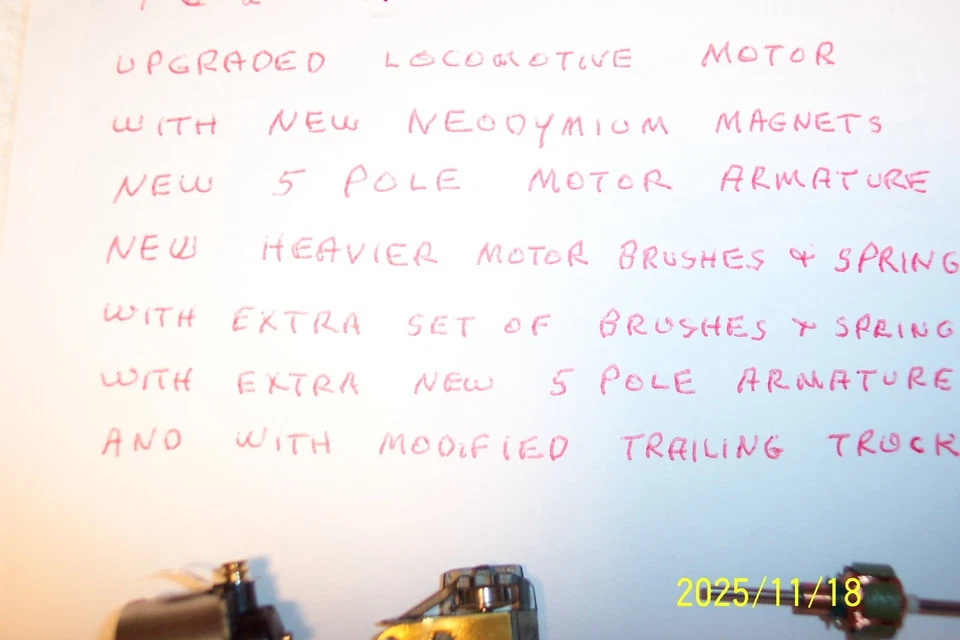 UPGRADED LOCOMOTIVE MOTOR
WITH NEW NEODYMIUM MAGNETS
NEW 5 POLE MOTOR ARMATURE
NEW HEAVIER MOTOR BRUSHES & SPRING
WITH EXTRA SET OF BRUSHES & SPRING
WITH EXTRA NEW 5 POLE ARMATURE
AND WITH MODIFIED TRAILING TRUCK
2025/11/18